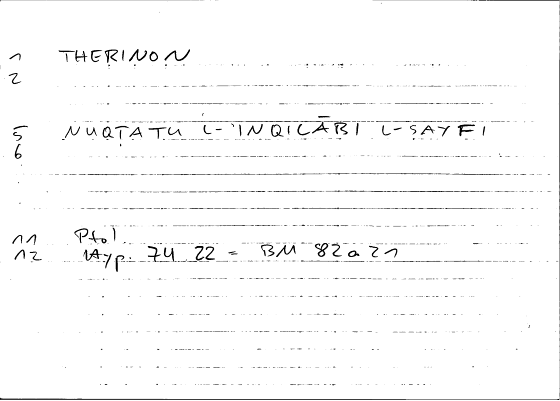 1 THERINON
2
5 NUQṬATU L-'INQILĀBI L-ṢAYFI
6
11 Ptol.
12 Hyp. 74 22 = BM 82a21